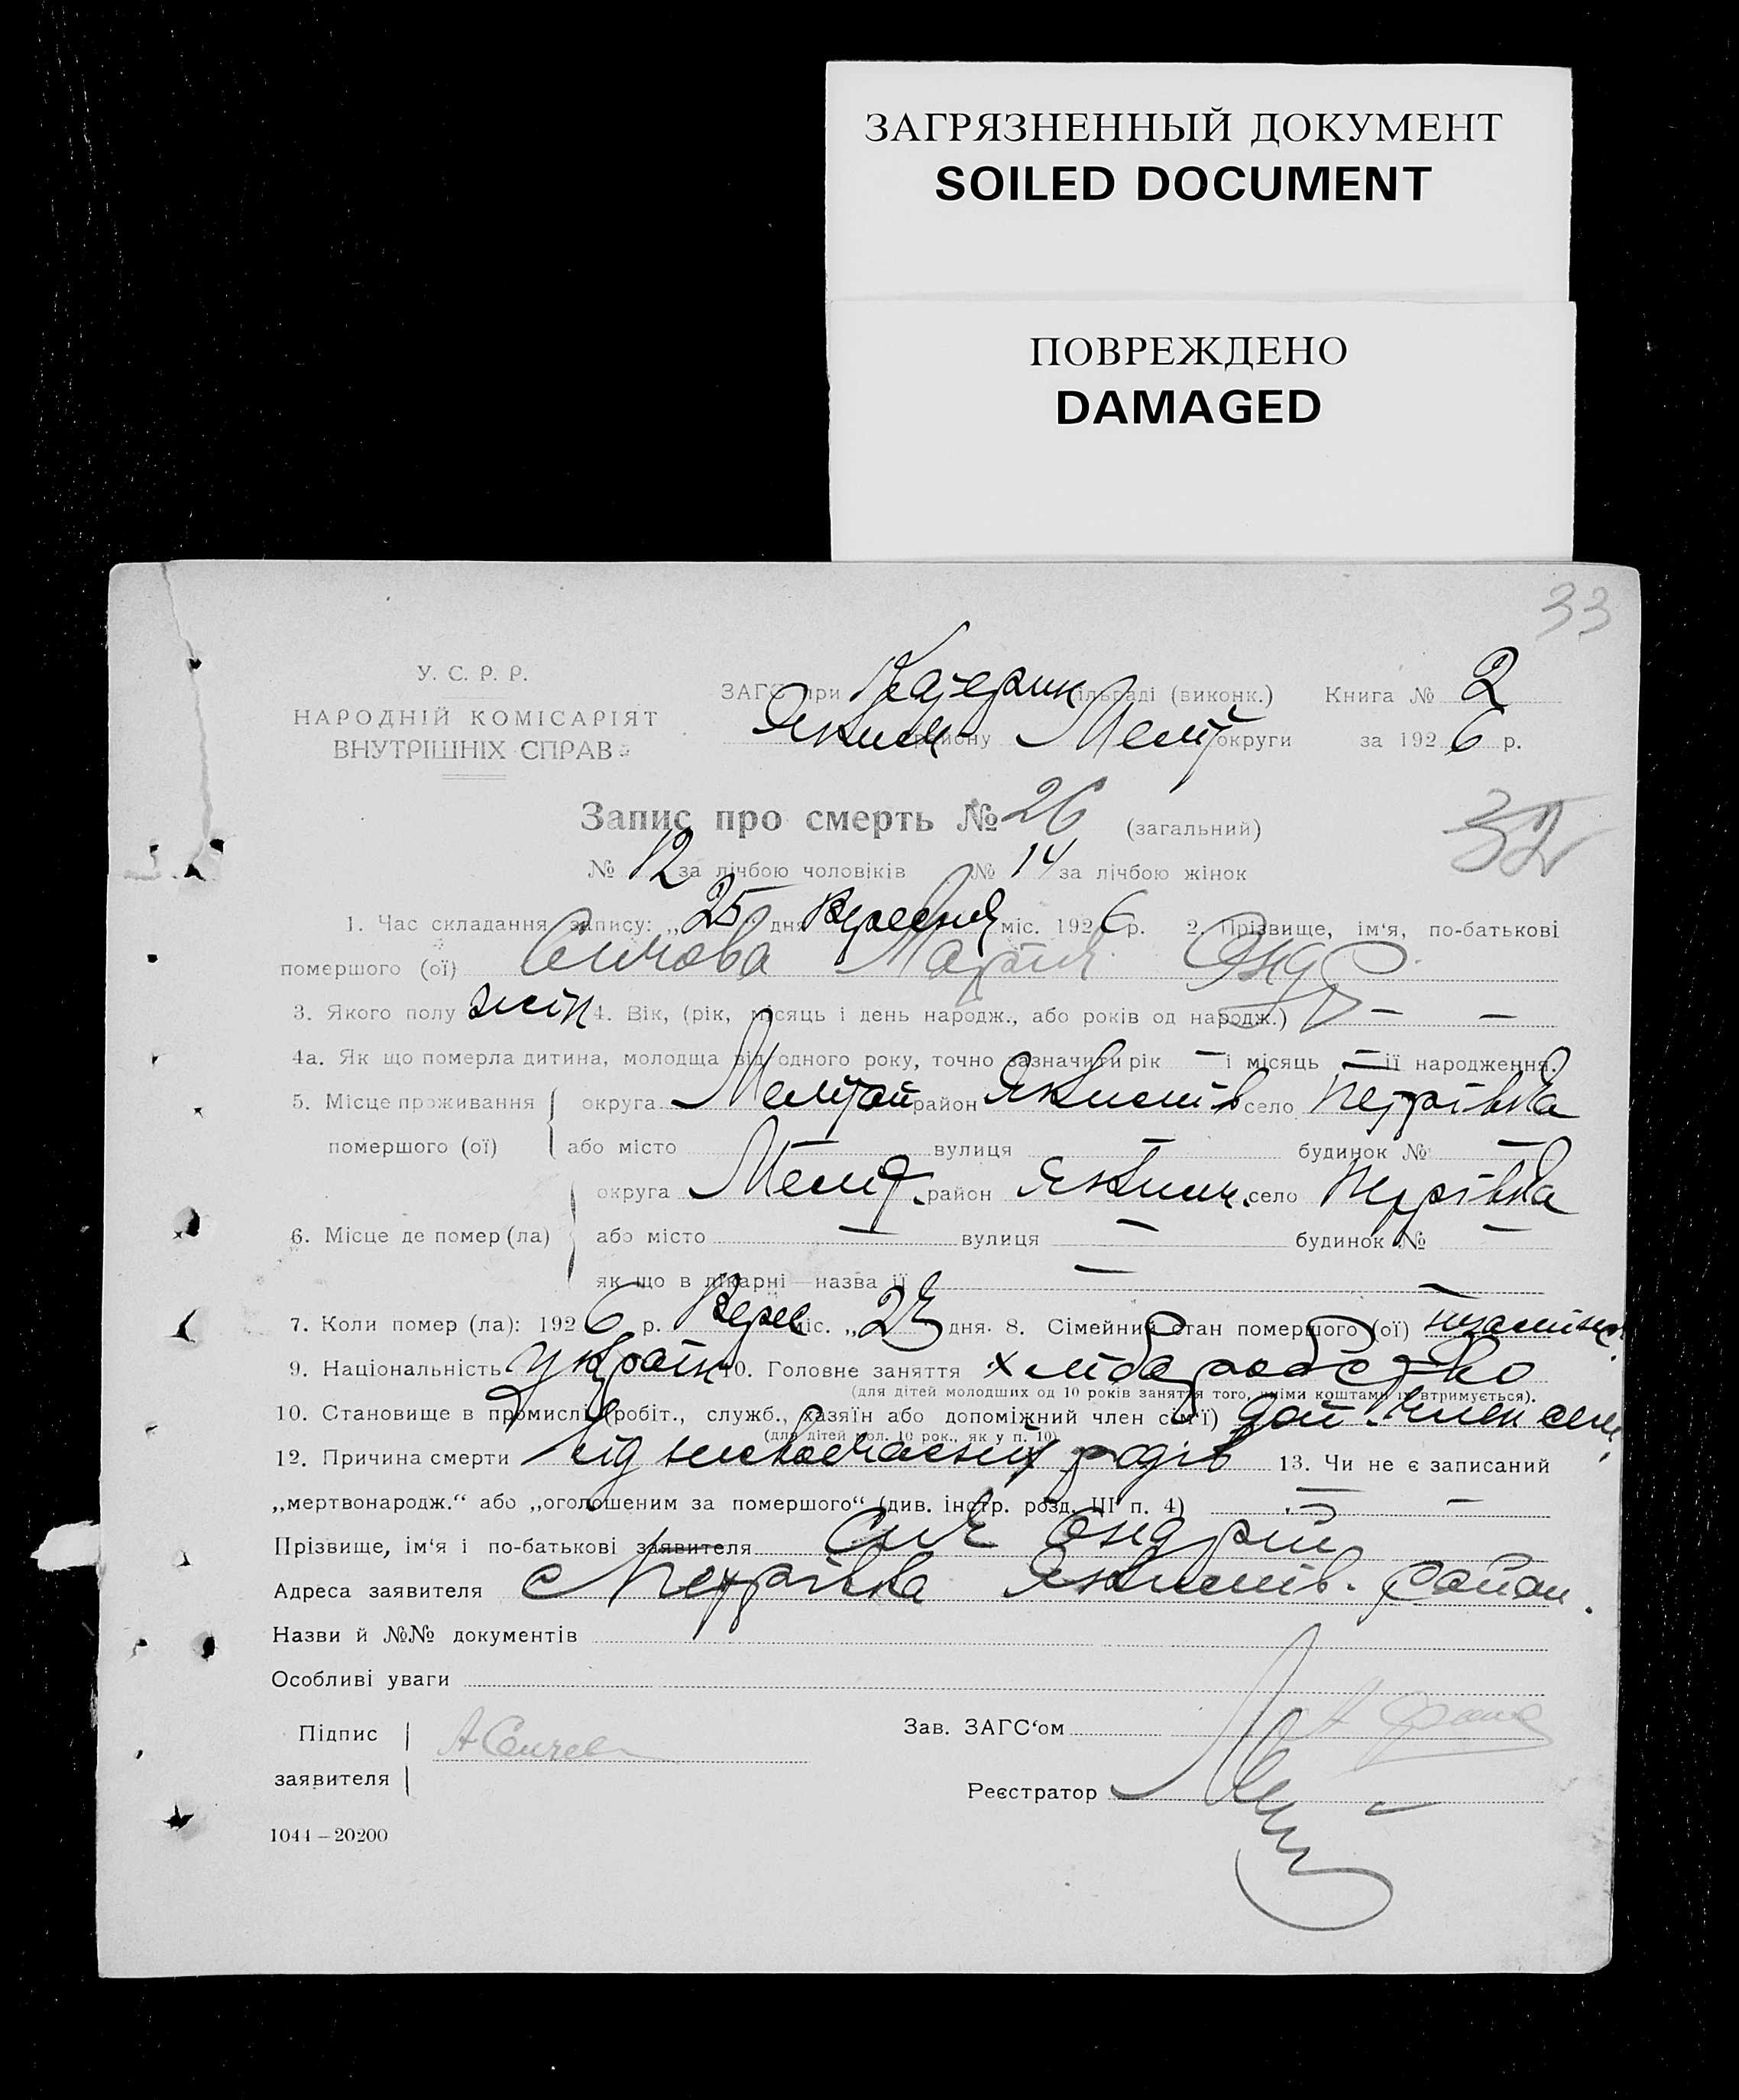 ЗАГРЯЗНЕННЫЙ ДОКУМЕНТ
SOILED DOCUMENT
ПОВРЕЖДЕНО
DAMAGED
33
У. С. Р. Р.
НАРОДНІЙ КОМІСАРІЯТ
ВНУТРІШНІХ СПРАВ
ЗАГС при Катерин сільраді (виконк.) Книга № 2
Яким району Меліт округи за 1926 р.
Запис про смерть № 26 (загальний)
32
№ 12 за лічбою чоловіків № 14 за лічбою жінок
1. Час складання запису: „25" дня Вересня міс. 1926 р. 2. Прізвище, ім'я, по-батькові
помершого (ої) Марія
3. Якого полу жін 4. Вік, (рік, місяць і день народж., або років од народж.) — —
4а. Як що померла дитина, молодща від одного року, точно зазначити рік — і місяць — її народження.
5. Місце проживання округа район Якимів село Петрівка
помершого (ої) або місто — вулиця — будинок № —
округа Меліт. район Яким. село Петрівка
6. Місце де помер (ла) або місто — вулиця — будинок № —
як що в лікарні — назва її —
7. Коли помер (ла): 1926 р. Верес міс. „23 дня. 8. Сімейний стан помершого (ої)
9. Національність Україн 10. Головне заняття хліборобство
(для дітей молодших од 10 років заняття того, чиїми коштами їх втримується).
10. Становище в промислі (робіт., служб., хазяїн або допоміжний член сім'ї) доп. член сем.
(для дітей мол. 10 рок., як у п. 10)
12. Причина смерти Від родів 13. Чи не є записаний
„мертвонародж.“ або „оголошеним за помершого“ (див. інстр. розд. III п. 4) — —
Прізвище, ім'я і по-батькові заявителя Сич Андрій
Адреса заявителя с Петрівка Якимів. район.
Назви й №№ документів
Особливі уваги
Підпис
заявителя
Зав. ЗАГС'ом
Реєстратор
1044 – 20200